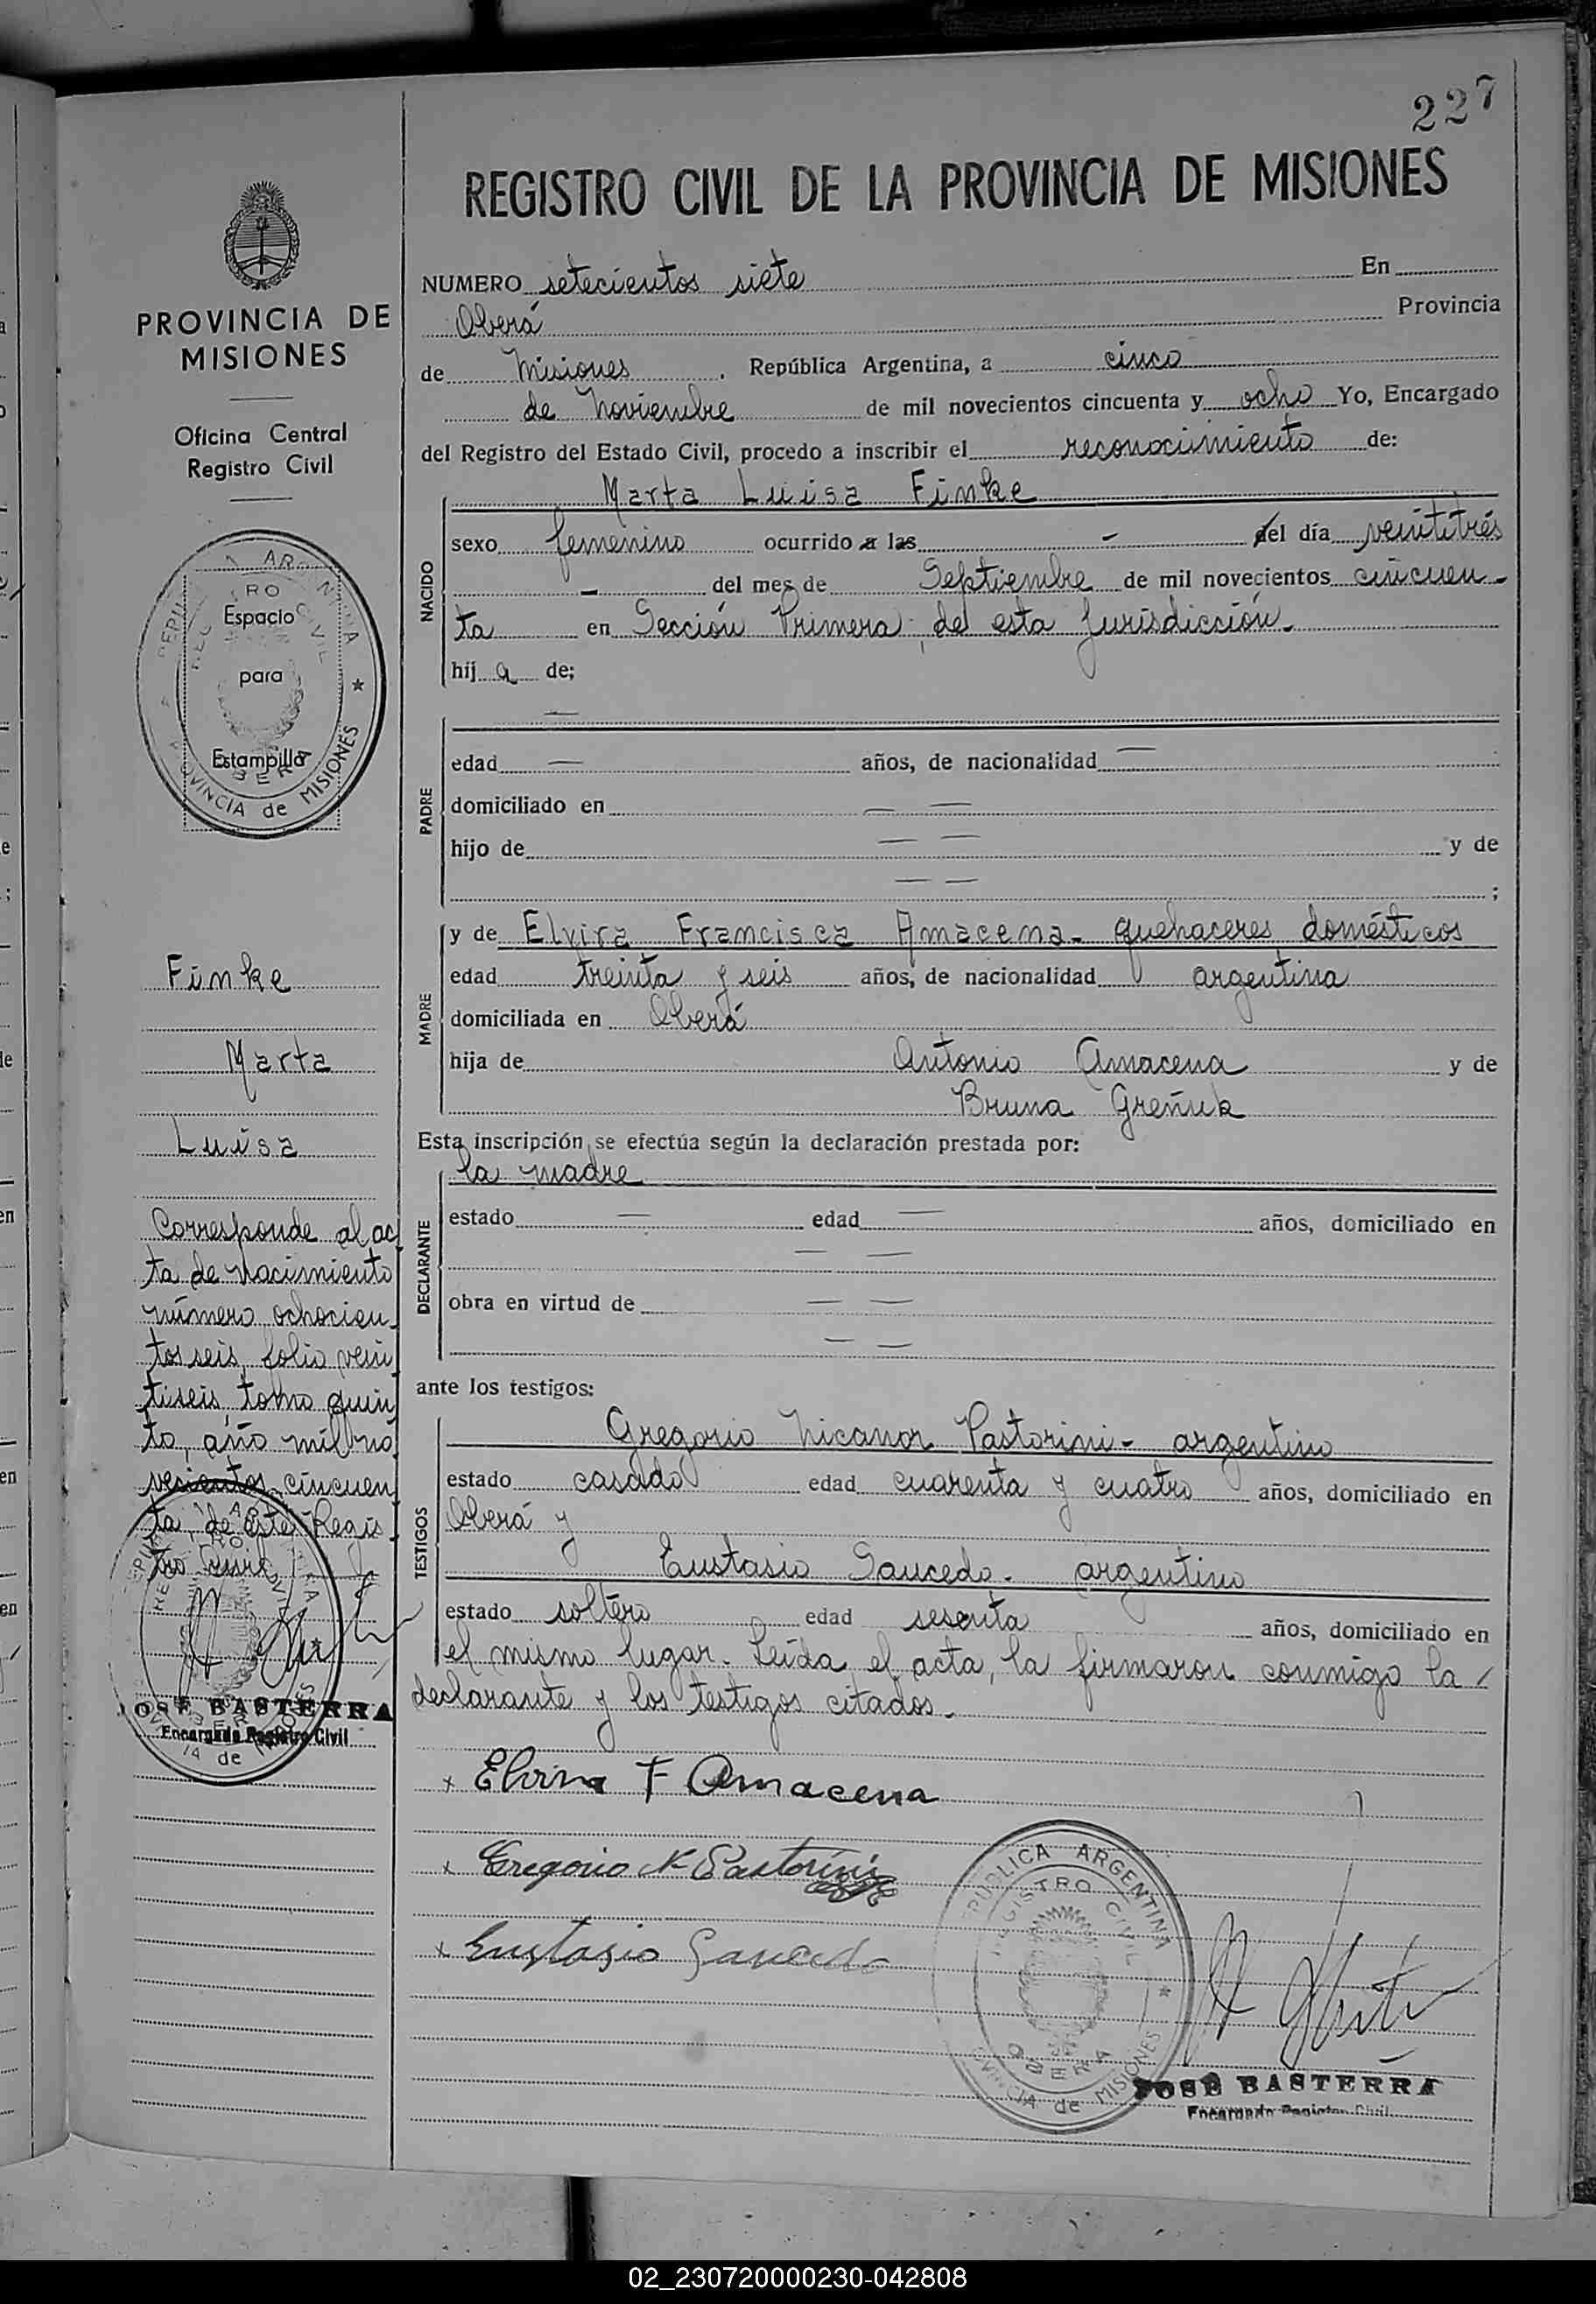 227
REGISTRO CIVIL DE LA PROVINCIA DE MISIONES
PROVINCIA DE
MISIONES
Oficina Central
Registro Civil
Espacio
para
Estampilla
Finke
Marta
Luisa
Corresponde al ac
ta de nacimiento
número ochocien-
tos seis, folio vein
tiseis, tomo quin
to, año mil no
vecientos cincuen
ta, de este Regis-
tro Civil
JOSE BASTERRA
Encargado Registro Civil
NUMERO setecientos siete En
Oberá Provincia
de Misiones. República Argentina, a cinco
de Noviembre de mil novecientos cincuenta y ocho Yo, Encargado
del Registro del Estado Civil, procedo a inscribir el reconocimiento de:
Marta Luisa Finke
NACIDO
sexo femenino ocurrido a las - del día veintitrés
- del mes de Septiembre de mil novecientos cincuen-
ta en Sección Primera, de esta Jurisdicción.
hij a de;
PADRE
—
edad — años, de nacionalidad —
domiciliado en — —
hijo de — — y de
— — ;
MADRE
y de Elvira Francisca Amacena- quehaceres domésticos
edad treinta y seis años, de nacionalidad argentina
domiciliada en Oberá
hija de Antonio Amacena y de
Bruna Greñuk
Esta inscripción se efectúa según la declaración prestada por:
la madre
DECLARANTE
estado — edad — años, domiciliado en
— —
obra en virtud de — —
— —
ante los testigos:
TESTIGOS
Gregorio Nicanor Pastorini- argentino
estado casado edad cuarenta y cuatro años, domiciliado en
Oberá y
Eustasio Saucedo- argentino
estado soltero edad sesenta años, domiciliado en
el mismo lugar. Leída el acta, la firmaron conmigo la
declarante y los testigos citados.
x Elvira F Amacena
x Gregorio N Pastorini
x Eustasio Saucedo
REPUBLICA ARGENTINA
REGISTRO CIVIL
OBERA
PROVINCIA de MISIONES
JOSE BASTERRA
Encargado Registro Civil
02_230720000230-042808